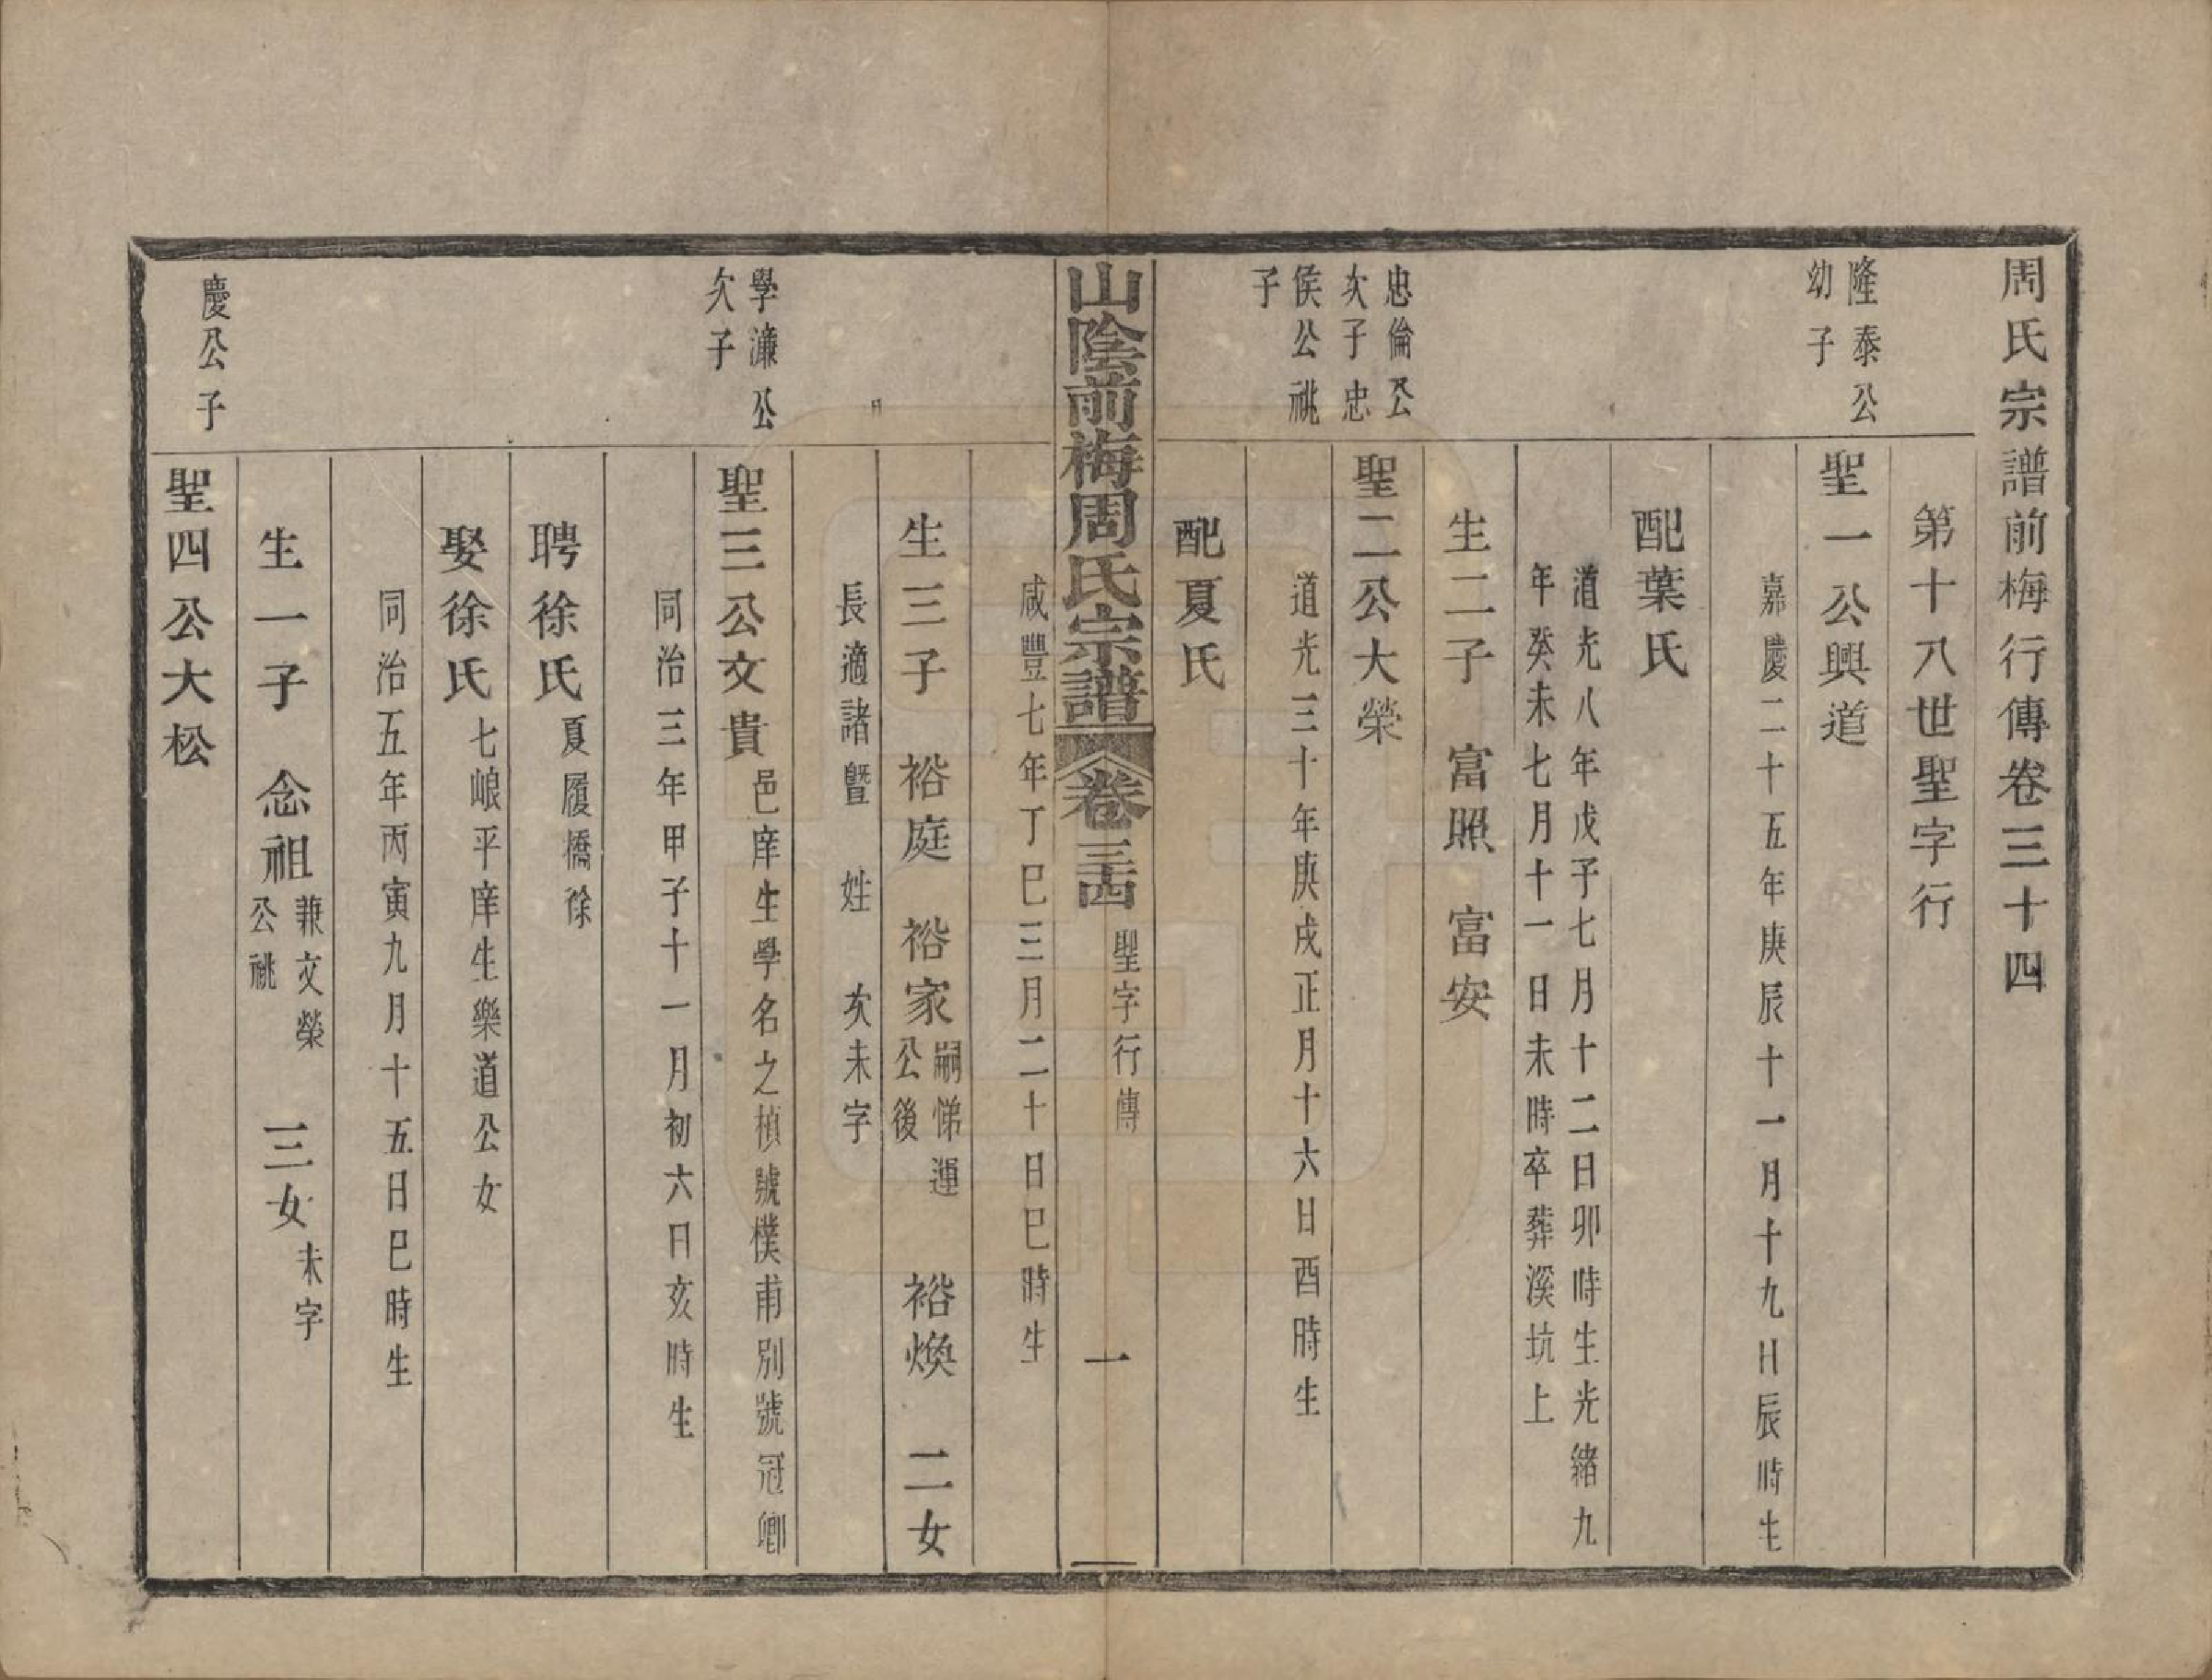 周氏宗譜前梅行傳卷三十四
第十八世聖字行
隆泰公
幼子
聖一公興道
嘉慶二十五年庚辰十一月十九日辰時生
配葉氏
道光八年戊子七月十二日卯時生光緒九
年癸未七月十一日未時卒葬溪坑上
生二子 富照 富安
忠倫公
次子忠
侯公祧
子
聖二公大榮
道光三十年庚戌正月十六日酉時生
配夏氏
山陰前梅周氏宗譜 卷三十四 聖字行傳 一
咸豐七年丁巳三月二十日巳時生
生三子 裕庭 裕家嗣悌運公後 裕煥 二女
長適諸暨 姓 次未字
學濂公
次子
聖三公文貴邑庠生學名之楨號樸甫別號冠卿
同治三年甲子十一月初六日亥時生
聘徐氏夏履橋徐
娶徐氏七峴平庠生樂道公女
同治五年丙寅九月十五日巳時生
生一子 念祖兼文榮公祧 三女未字
慶公子
聖四公大松